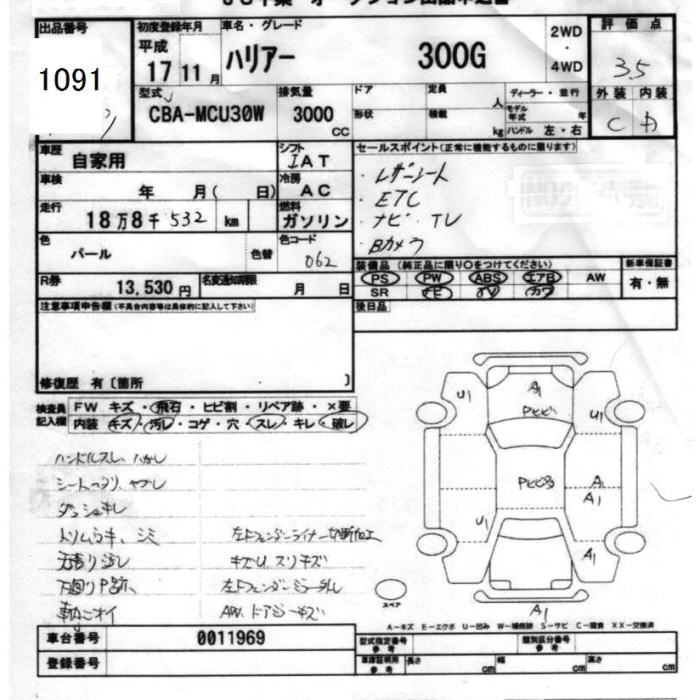 出品番号 初度登録年月 車名・グレード 2WD 評価点
1091 平成 17 11 月 ハリアー 300G ・ 4WD 3.5
型式 排気量 ドア 定員 人 ディーラー・並行 外装 内装
CBA-MCU30W 3000 CC 形状 積載 kg モデル年式 年 ハンドル 左・右 C D
車歴 自家用 シフト IAT セールスポイント(正常に機能するものに限ります)
車検 年 月( 日) 冷房 AC ・レザーシート
走行 18万8千532 km 燃料 ガソリン ・ETC
・ナビ・TV
色 パール 色替 色コード 062 ・Bカメラ
装備品 (純正品に限り○をつけてください) 新車保証書
R券 13,530円 名変通知期限 月 日 PS PW ABS エアB AW 有・無
SR TV カワ
注意事項申告欄(不具合内容等は具体的に記入して下さい) 後日品
修復歴 有〔箇所 〕
検査員記入欄 FW キズ・飛石・ヒビ割・リペア跡・×要
内装 キズ・汚レ・コゲ・穴・スレ・キレ・破レ
ハンドルスレ、ハガレ
シートヘタリ、ヤブレ
ダッシュキレ
トリムうキ、シミ 左Fフェンダーライナー切断加工
キズU、スリキズ
下廻りP跡、 左Fフェンダーミラー外し
車内ニオイ AW、ドアミラーキズ
U1 A1 U1
Pヒビ
Pヒビ多 A1
A1
U1 A1
スペア A1
A-キズ E-エクボ U-凹み W-補修跡 S-サビ C-腐食 XX-交換済
車台番号 0011969 型式指定番号 参考 類別区分番号 参考
登録番号 車庫証明用 参考 長さ cm 幅 cm 高さ cm